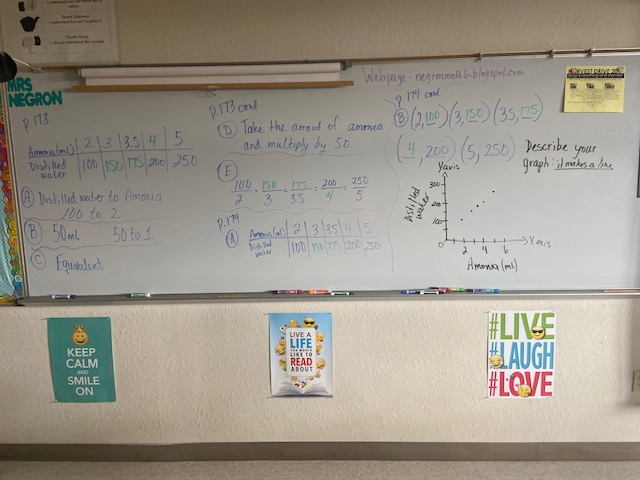 MRS
NEGRON
Webpage - negronmath6.blogspot.com
p.173
Ammonia (mL) 2 3 3.5 4 5
Distilled water 100 150 175 200 250
A Distilled water to Amonia
100 to 2
B 50mL 50 to 1
C Equivalent
p.173 cont
D Take the amount of ammonia
and multiply by 50.
E
100/2 = 150/3 = 175/3.5 = 200/4 = 250/5
p.174
A Ammonia (mL) 2 3 3.5 4 5
Distilled water 100 150 175 200 250
p.174 cont
B (2,100) (3,150) (3.5, 175)
(4, 200) (5, 250)
Describe your
graph: it makes a line
Yaxis
Distilled water
300
200
100
0
2 4 6
Xaxis
Ammonia (mL)
KEEP
CALM
AND
SMILE
ON
LIVE A
LIFE
YOU WOULD
LIKE TO
READ
ABOUT
#LIVE
#LAUGH
#LOVE